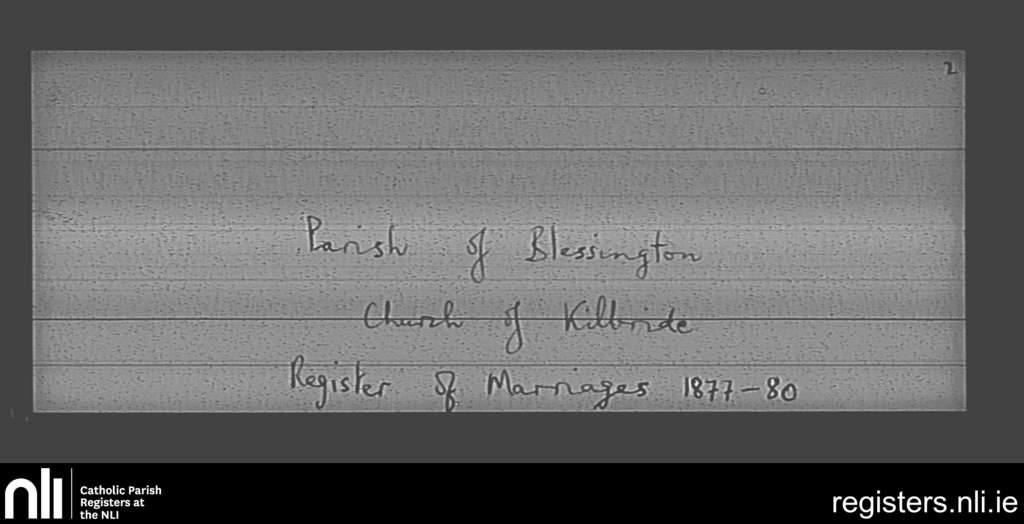 2
Parish of Blessington
Church of Kilbride
Register of Marriages 1877-80
nli
Catholic Parish
Registers at
the NLI
registers.nli.ie